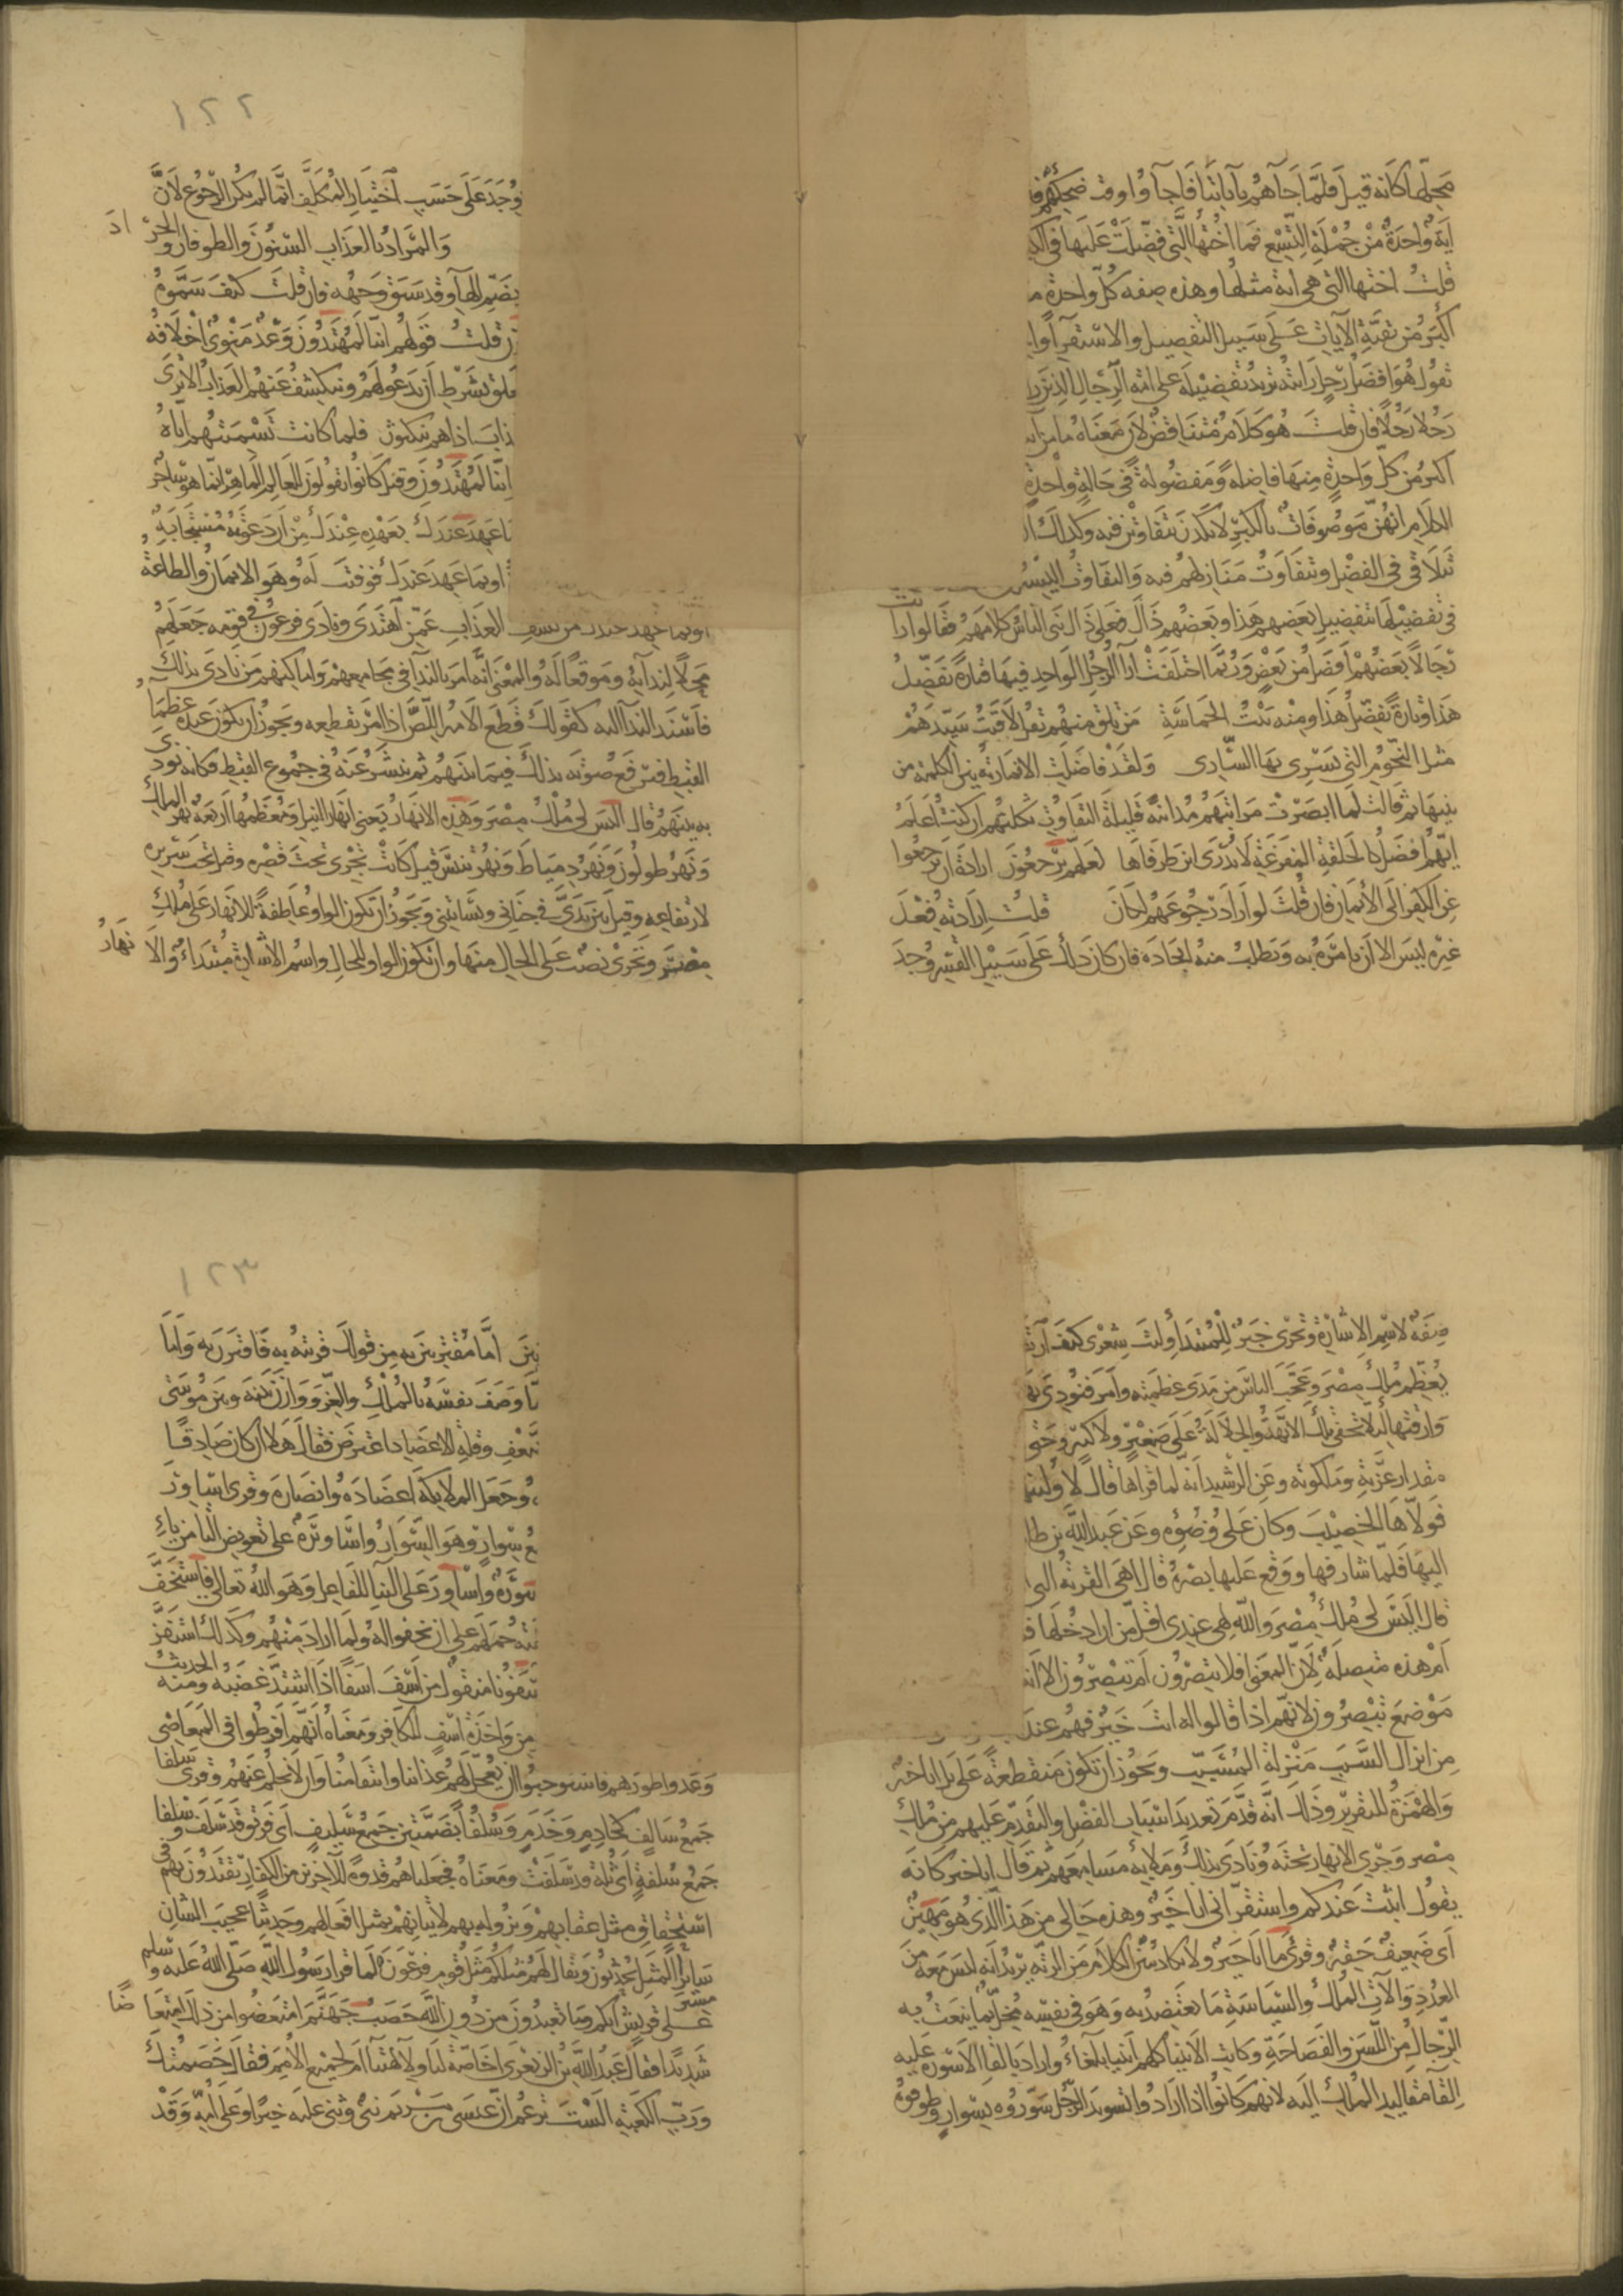 محلها كانه قيل فلما جاهم باياتنا فاجأوا وقت ضحكهم فا
اية واحدة من جملة التسع فما اختها التي فضلت عليها في الكبر
قلت اختها التي هي اية مثلها وهذه صفه كل واحدة م
اكبر من بقية الايات على سبيل التفصيل والاستقرا وا
تقول هو افضل رجل رايته تريد تفضيله على امة الرجال الذين را
رجلا رجلا فان قلت هو كلام متناقض لان معناه ما من اية
اكبر من كل واحدة منها فاضلة ومفضولة في حالة واحدة
الكلام انهن موصوفات بالكبر لا يكدن يتفاوتن فيه وكذلك ا
تتلاقى في الفضل وتتفاوت منازلهم فيه والتفاوت اليسير
في تفضيلها فتفضيل بعضهم هذا وبعضهم ذاك فعلى ذلك بنى الناس كلامهم فقالوا رايت
رجالا بعضهم افضل من بعض وربما اختلفت ارا الرجل الواحد فيها فتارة يفضل
هذا وتارة يفضل هذا ومنه بيت الحماسة من تلق منهم تقل لاقيت سيدهم
مثل النجوم التي يسري بها الساري ولقد فاضلت الانمارية بين الكلمة من
بنيها ثم قالت لما ابصرت مراتبهم متدانية قليلة التفاوت ثكلتهم ان كنت اعلم
ايهم افضل كالحلقة المفرغة لا يدرى اين طرفاها لعلهم يرجعون ارادة ان يرجعوا
عن الكفر الى الايمان فان قلت لو اراد رجوعهم لكان قلت ارادته فعل
غيره ليس الا ان يامره به ويطلب منه ايجاده فان كان ذلك على سبيل القسر وجد
١٢٢
وجد على حسب اختيار المكلف انما لم يكن الرجوع لان
والمراد بالعذاب السنون والطوفان والجراد
بضم الها وقد سبق وجهه فان قلت كيف سموه
قلت قولهم اننا لمهتدون وعد منوي اخلافه
معلق بشرط ان يدعو لهم وينكشف عنهم العذاب الا ترى
العذاب اذا هم ينكثون فلما كانت تسميتهم اياه
اننا لمهتدون وقيل كانوا يقولون للعالم الماهر انما هو ساحر
بما عهد عندك بعهده عندك من ان دعوته مستجابة
او بما عهد عندك فوفيت له وهو الايمان والطاعة
او بما عهد عندك من كشف العذاب عمن اهتدى ونادى فرعون في قومه جعلهم
محلا لندايه وموقعا له والمعنى انه امر بالندا في مجامعهم واماكنهم من نادى بذلك
فاسند الندا اليه كقولك قطع الامير اللص اذا امر بقطعه ويجوز ان يكون عنده عظما
القبط فيرفع صوته بذلك فيما بينهم ثم ينشر عنه في جموع القبط فكانه نودي
به بينهم قال اليس لي ملك مصر وهذه الانهار يعني انهار النيل ومعظمها اربعة نهر الملك
ونهر طولون ونهر دمياط ونهر تنيس قيل كانت تجري تحت قصره وقيل تحت سريره
لارتفاعه وقيل بين يدي في جناني وبساتيني ويجوز ان تكون الواو عاطفة للانهار على ملك
مصر وتجري نصب على الحال منها وان تكون الواو للحال واسم الاشارة مبتدا والانهار
صفة لاسم الاشارة وتجري خبر للمبتدا وليت شعري كيف ارتقت
يعظم ملك مصر وعجب الناس من مدى عظمته وامر فنودي بها
وازقتها ليلا تخفى تلك الابهة والجلالة على صغير ولا كبير وحتى
مقدار عزته وملكوته وعن الرشيد انه لما قراها قال لاولينها
فولاها الخصيب وكان على وضوئه وعن عبد الله بن طا
اليها فلما شارفها ووقع عليها بصره قال اهي القرية التي
قال اليس لي ملك مصر والله لهي عندي اقل من ان ادخلها ف
ام هذه متصلة لان المعنى افلا تبصرون ام تبصرون الا انه
موضع تبصرون لانهم اذا قالوا له انت خير فهم عند
من انزال السبب منزلة المسبب ويجوز ان تكون منقطعة على بل اانا خير
والهمزة للتقرير وذلك انه قدم تعديد اسباب الفضل والتقدم عليهم من ملك
مصر وجري الانهار تحته ونادى بذلك وملا به مسامعهم ثم قال انا خير كانه
يقول اثبت عندكم واستقر اني انا خير وهذه حالي من هذا الذي هو مهين
اي ضعيف حقير وقرئ اما انا خير ولا يكاد يبين الكلام من الرتة يريد انه ليس معه من
العدد والات الملك والسياسة ما يعتضد به وهو في نفسه مخل بما ينعت به
الرجال من اللسن والفصاحة وكانت الانبيا كلهم ابينا بلغاء واراد بالقا الاسورة عليه
القا مقاليد الملك اليه لانهم كانوا اذا ارادوا تسويد الرجل سوروه بسوار وطوقوه
١٢٣
اما مقترنين به من قولك قرنته به فاقترن به واما
وصف نفسه بالملك والعز ووازن بينه وبين موسى
بالضعف وقلة الاعضاد اعترض فقال هلا ان كان صادقا
وجعل الملايكة اعضاده وانصاره وقرئ اساور
جمع سوار وهو السوار واساورة على تعويض التا من ياء
اسورة واساور على البنا للفاعل وهو الله تعالى فاستخف
حملهم على ان يخفوا له ولما اراد منهم وكذلك استفز
اسفونا منقول من اسف اسفا اذا اشتد غضبه ومنه الحديث
من واخذة اسف للكافر ومعناه انهم افرطوا في المعاصي
وعدوا طورهم فاستوجبوا ان يعجل لهم عذابنا وانتقامنا وان لا نحلم عنهم وقرئ سلفا
جمع سالف كخادم وخدم وسلفا بضمتين جمع سليف اي فريق قد سلف وسلفا
جمع سلفة اي ثلة قد سلفت ومعناه فجعلناهم قدوة للاخرين من الكفار يقتدون بهم في
استحقاق مثل عقابهم ونزوله بهم لاتيانهم بمثل افعالهم وحديثا عجيب الشان
سايرا مسير المثل يحدثون به ويقال لهم مثلكم مثل قوم فرعون لما قرا رسول الله صلى الله عليه وسلم
على قريش انكم وما تعبدون من دون الله حصب جهنم امتعضوا من ذلك امتعاضا
شديدا فقال عبد الله بن الزبعرى اخاصة لنا ولالهتنا ام لجميع الامم فقال خصمتك
ورب الكعبة الست تزعم ان عيسى بن مريم نبي وتثني عليه خيرا وعلى امه وقد